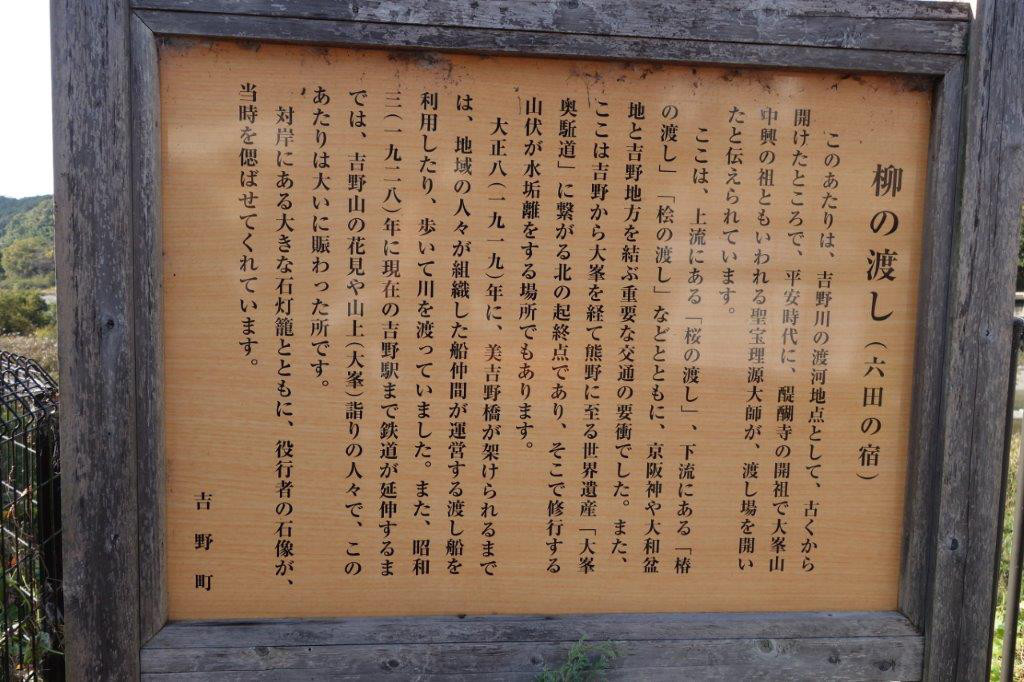 柳の渡し（六田の宿）
このあたりは、吉野川の渡河地点として、古くから
開けたところで、平安時代に、醍醐寺の開祖で大峯山
中興の祖ともいわれる聖宝理源大師が、渡し場を開い
たと伝えられています。
ここは、上流にある「桜の渡し」、下流にある「椿
の渡し」「桧の渡し」などとともに、京阪神や大和盆
地と吉野地方を結ぶ重要な交通の要衝でした。また、
ここは吉野から大峯を経て熊野に至る世界遺産「大峯
奥駈道」に繋がる北の起終点であり、そこで修行する
山伏が水垢離をする場所でもあります。
大正八（一九一九）年に、美吉野橋が架けられるまで
は、地域の人々が組織した船仲間が運営する渡し船を
利用したり、歩いて川を渡っていました。また、昭和
三（一九二八）年に現在の吉野駅まで鉄道が延伸するま
では、吉野山の花見や山上（大峯）詣りの人々で、この
あたりは大いに賑わった所です。
対岸にある大きな石灯籠とともに、役行者の石像が、
当時を偲ばせてくれています。
吉野町